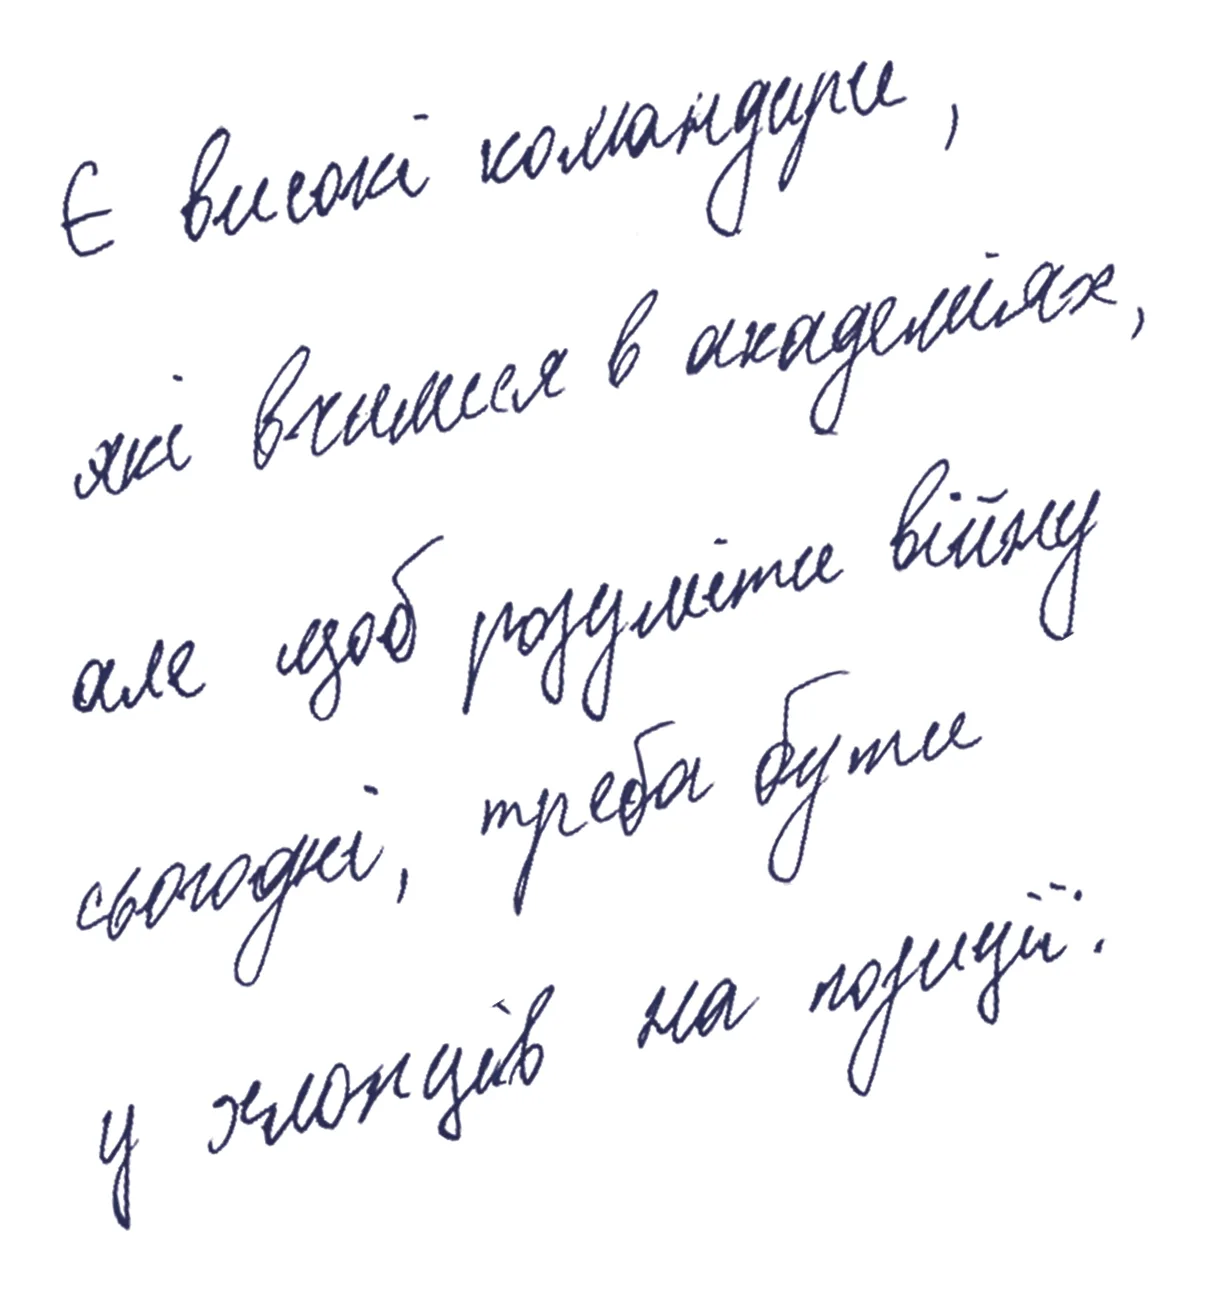 Є високі командири,
які вчилися в академіях,
але щоб розуміти війну
сьогодні, треба бути
у хлопців на позиції.